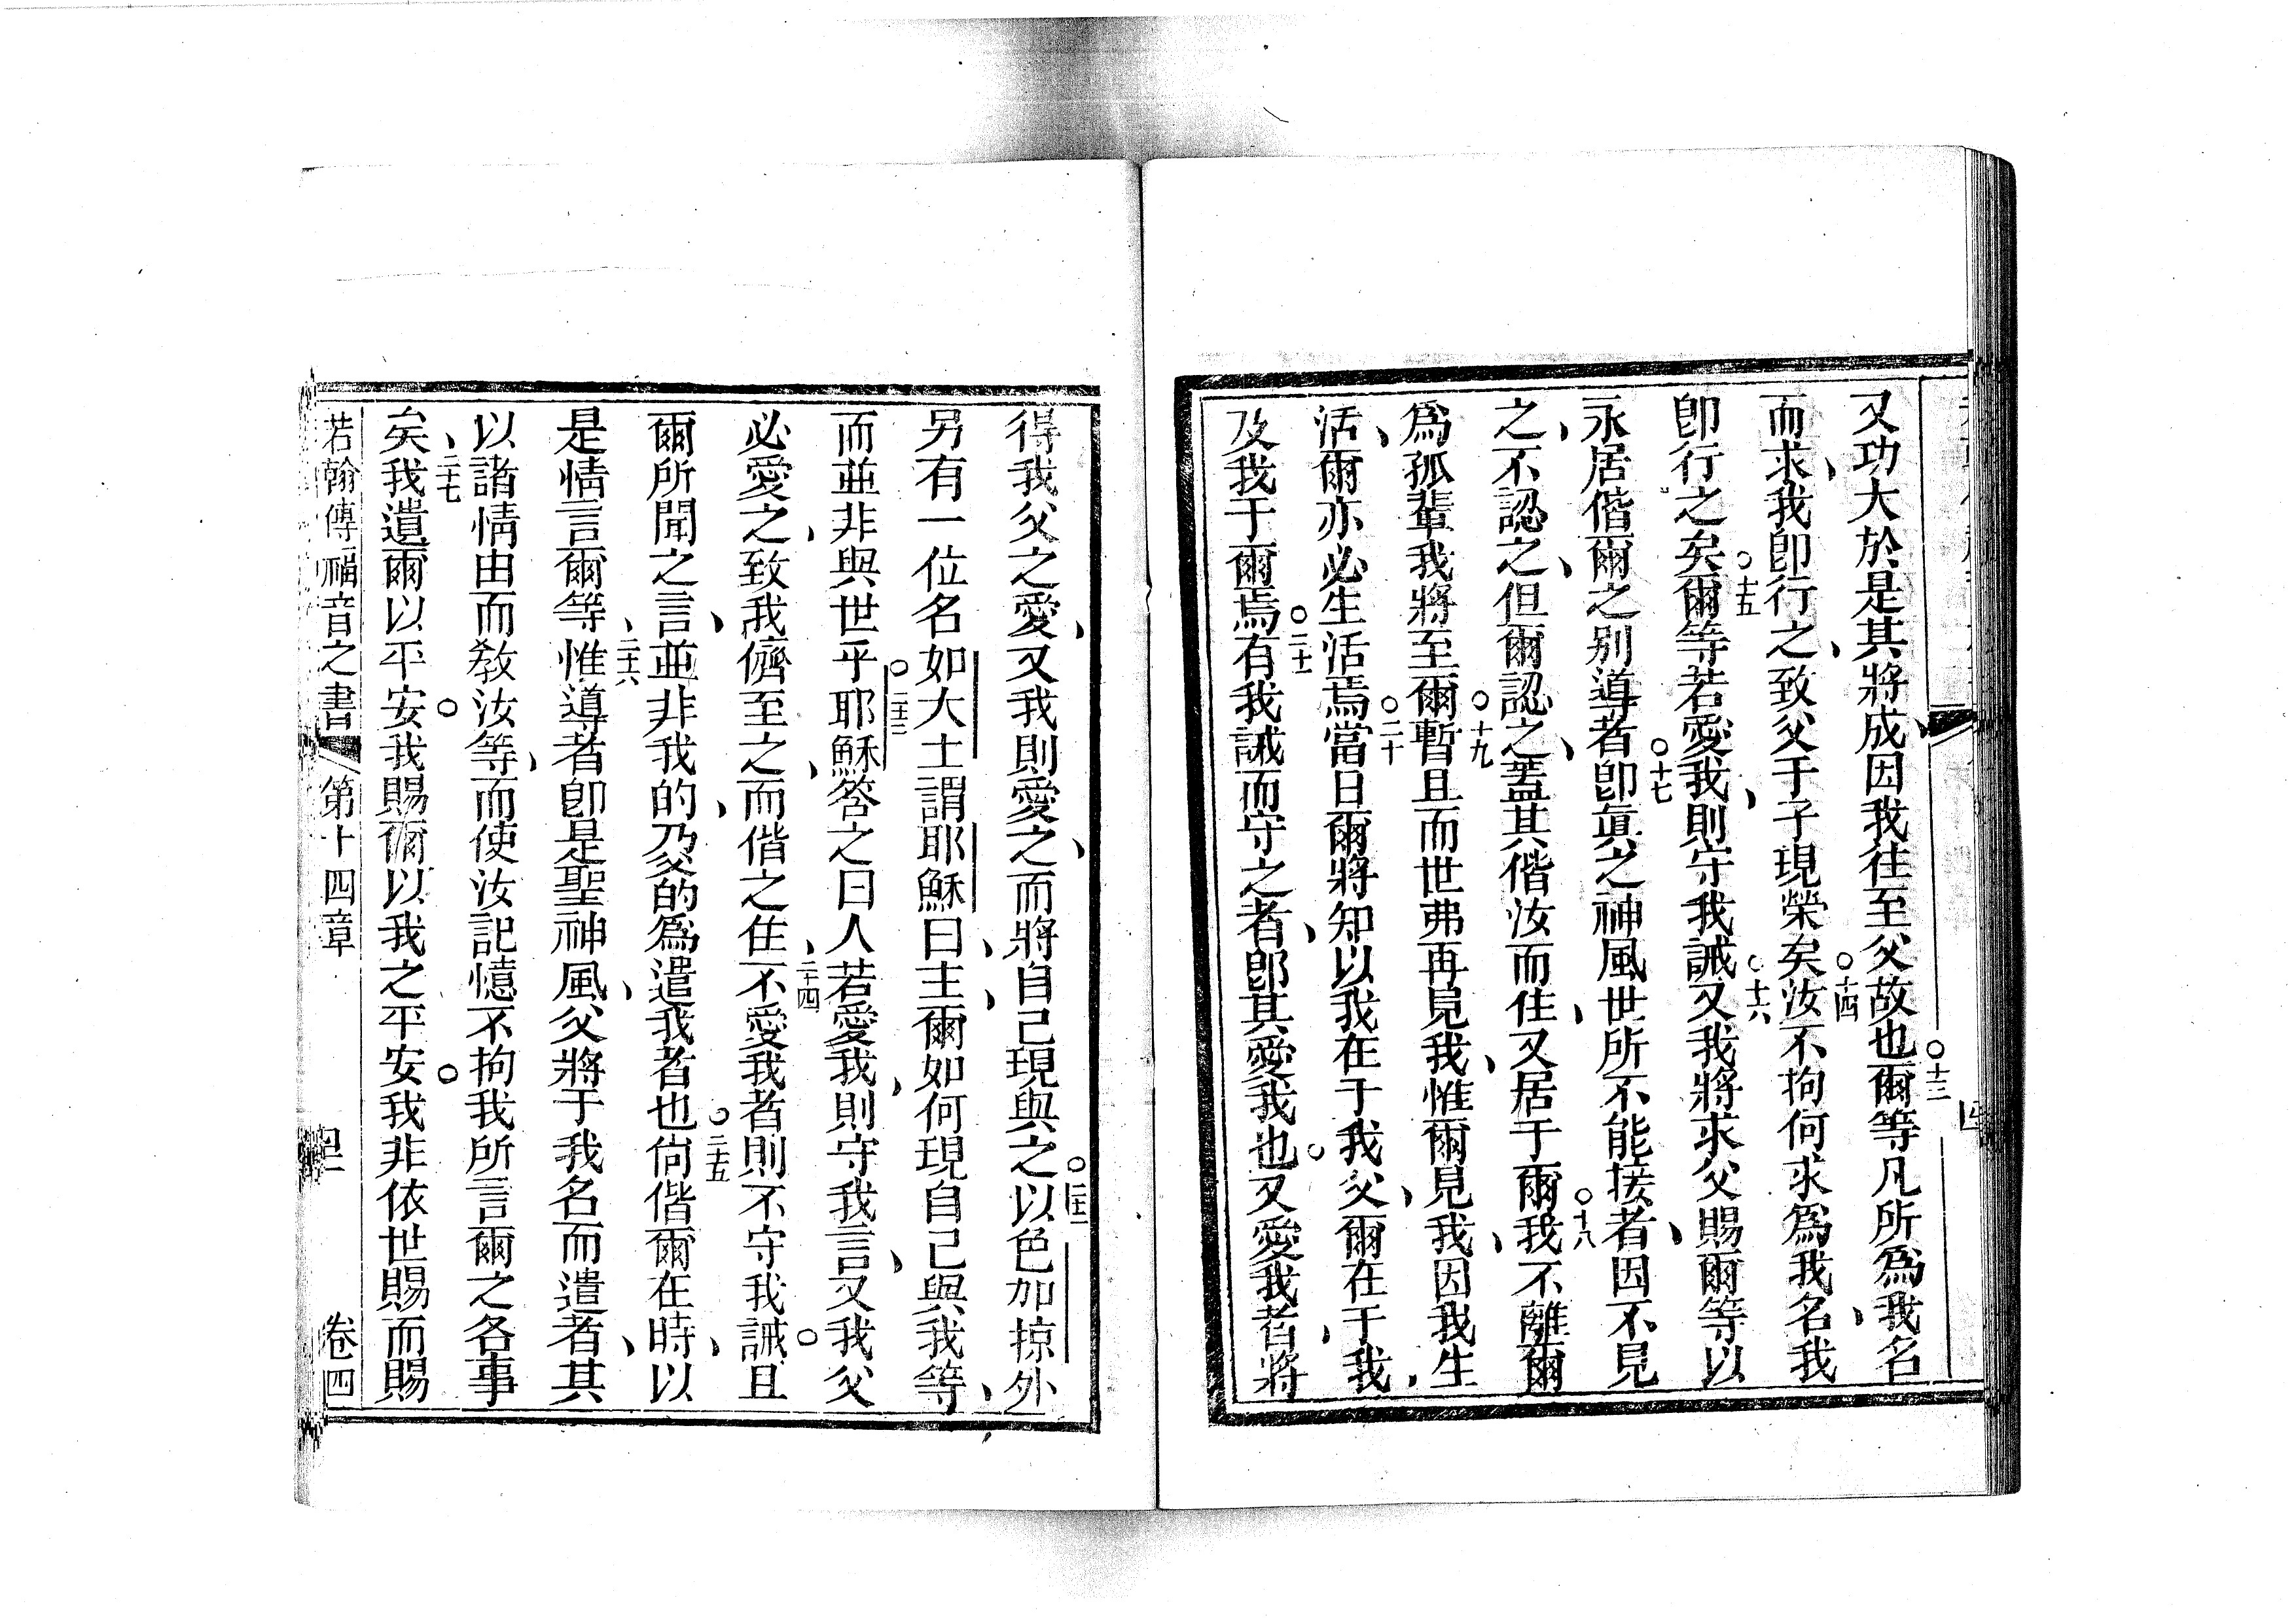 又功大於是其將成因我往至父故也爾等凡所爲我名
○十三
而求我卽行之致父于子現榮矣汝不拘何求爲我名我
○十四
卽行之矣爾等若愛我則守我誡又我將求父賜爾等以
○十五
○十六
永居偕爾之别導者卽眞之神風世所不能接者因不見
○十七
之不認之但爾認之蓋其偕汝而住又居于爾我不離爾
○十八
爲孤輩我將至爾暫且而世弗再見我惟爾見我因我生
○十九
活爾亦必生活焉當日爾將知以我在于我父爾在于我
○二十
及我于爾焉有我誡而守之者卽其愛我也又愛我者將
○二十一
得我父之愛又我則愛之而將自己現與之以色加掠外
○二十二
另有一位名如大士謂耶穌曰主爾如何現自己與我等
而並非與世乎耶穌答之曰人若愛我則守我言又我父
○二十三
必愛之致我儕至之而偕之住不愛我者則不守我誡且
二十四
爾所聞之言並非我的乃父的爲遣我者也尙偕爾在時以
○二十五
是情言爾等惟導者卽是聖神風父將于我名而遣者其
二十六
以諸情由而教汝等而使汝記憶不拘我所言爾之各事
矣我遺爾以平安我賜爾以我之平安我非依世賜而賜
二十七
若翰傳福音之書 第十四章 卷四